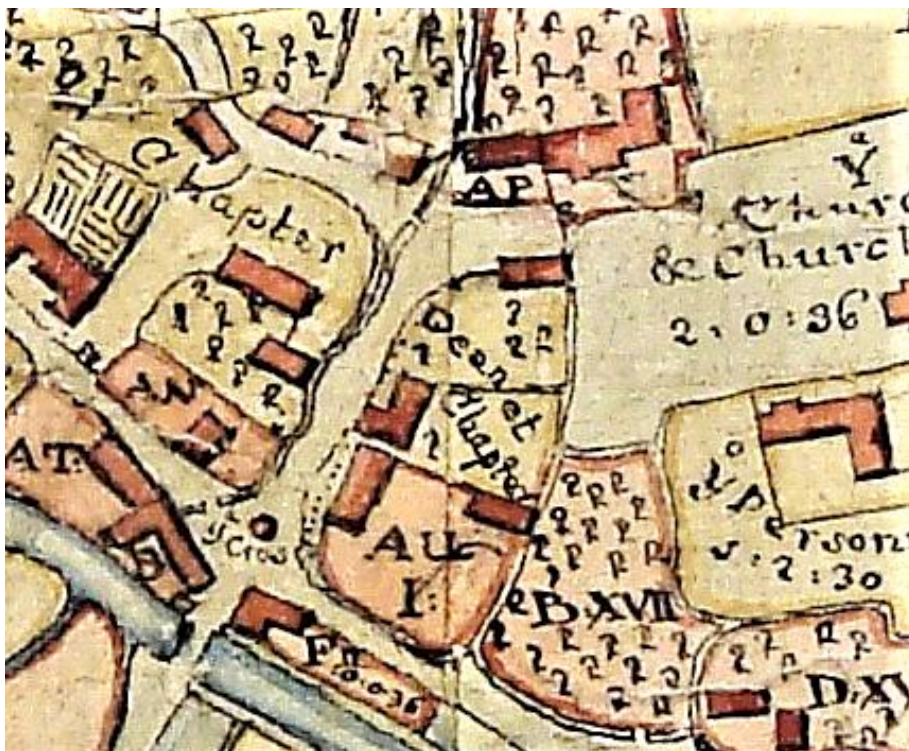 Chapter
AP
ye
Churc
& Church
2:0:36
Dean et
Chapter
AN
AT:
ye
Cros
AU
I:
B:XVII
ye Persona
0:0:36
D:XV